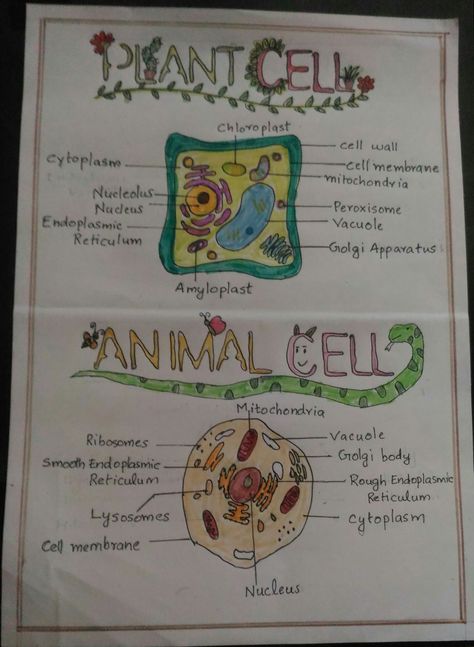 PLANT CELL
Chloroplast
cell wall
Cytoplasm
Cell membrane
mitochondria
Nucleolus
Nucleus
Peroxisome
Endoplasmic
Reticulum
Vacuole
Golgi Apparatus
Amyloplast
ANIMAL CELL
Mitochondria
Ribosomes
Vacuole
Golgi body
Smooth Endoplasmic
Reticulum
Rough Endoplasmic
Reticulum
Lysosomes
Cytoplasm
Cell membrane
Nucleus